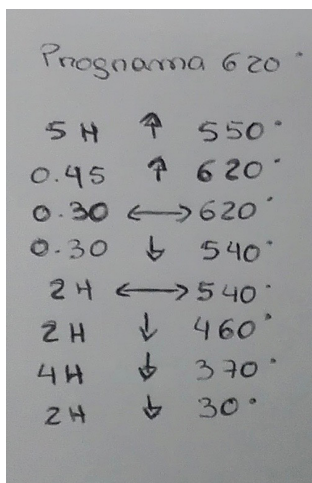 Programa 620°
5 H ↑ 550°
0.45 ↑ 620°
0.30 ↔ 620°
0.30 ↓ 540°
2 H ↔ 540°
2 H ↓ 460°
4 H ↓ 370°
2 H ↓ 30°